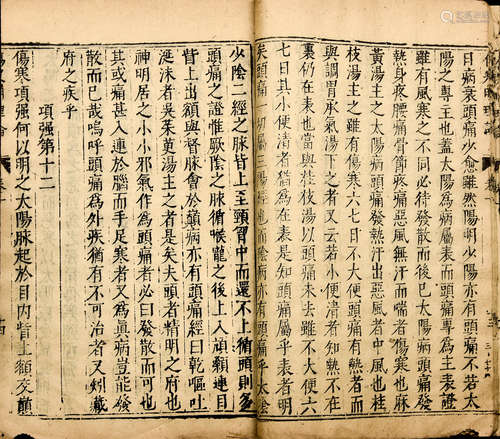 日病衰頭痛少愈雖然陽明少陽亦有頭痛不若太
陽之專主也蓋太陽爲病屬表而頭痛專爲主表證
雖有風寒之不同必待發散而後巳太陽病頭痛發
熱身疼腰痛骨節疼痛惡風無汗而喘者傷寒也麻
黃湯主之太陽病頭痛發熱汗出惡風者中風也桂
枝湯主之雖有傷寒六七日不大便頭痛有熱者而
與調胃承氣湯下之者又云若小便清者知熱不在
裏仍在表也當與桂枝湯以頭痛未去雖不大便六
七日其小便清者猶爲在表是知頭痛屬乎表者明
矣頭痛一切屬三陽經也而陰病亦有頭痛乎太陰
少陰二經之脉皆上至頸胷中而還不上循頭則多
頭痛之證惟厥陰之脉循喉嚨之後上入頏顙連目
眥上出額與督脉會於巔病亦有頭痛經曰乾嘔吐
涎沫者吳茱萸湯主之者是矣夫頭者精明之府也
神明居之小小邪氣作爲頭痛者必曰發散而可也
其或痛甚入連於腦而手足寒者又爲眞病豈能發
散而巳哉嗚呼頭痛爲外疾猶有不可治者又矧藏
府之疾乎
項强第十二
傷寒項强何以明之太陽脉起於目內眥上額交巔